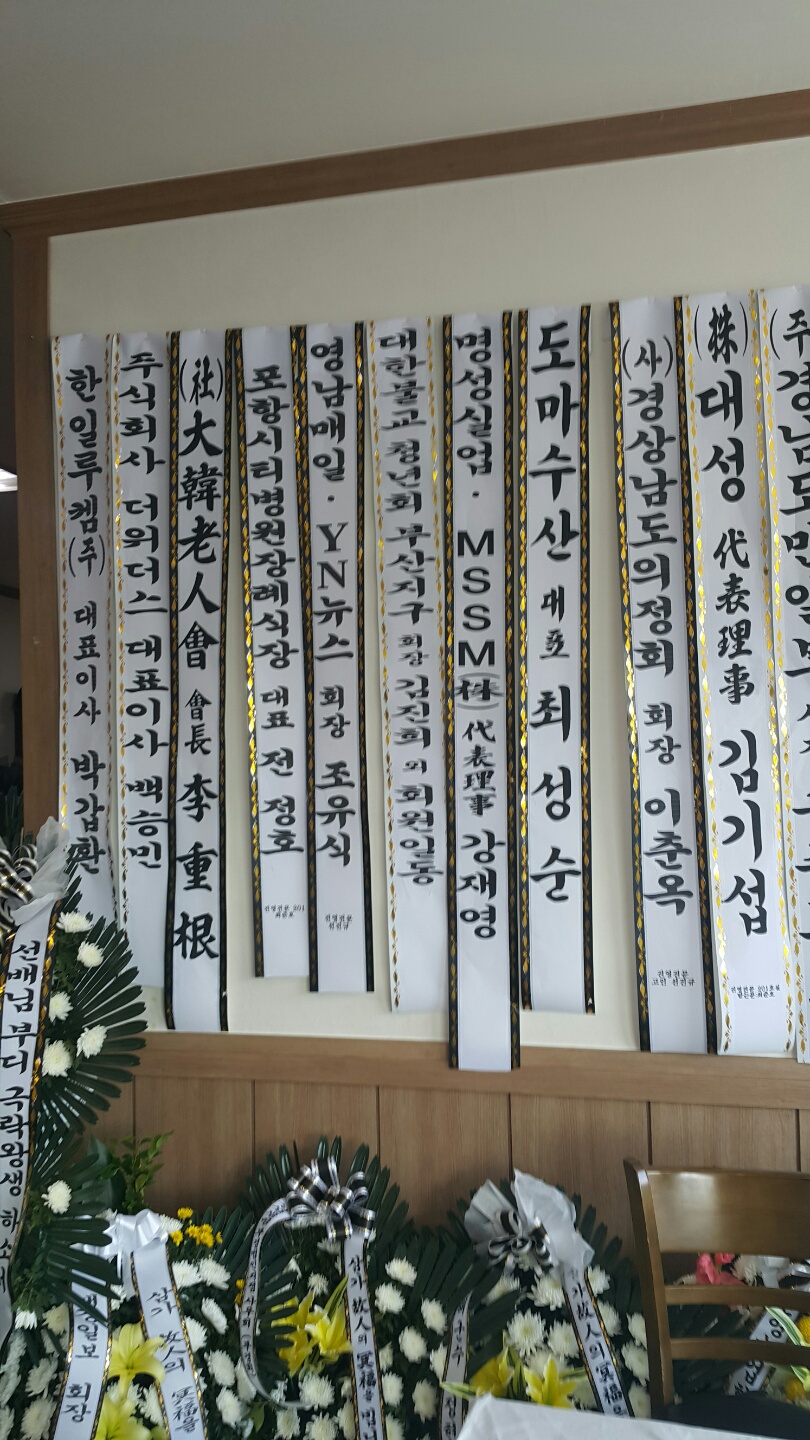 한일루켐(주) 대표이사 박갑환
주식회사 더위더스 대표이사 백승민
(社)大韓老人會 會長 李重根
포항시티병원장례식장 대표 전정호
영남매일·YN뉴스 회장 조유식
대한불교청년회 부산지구 회장 김진희 외 회원일동
명성실업· MSSM(株) 代表理事 강재영
도마수산 대표 최성순
(사)경상남도의정회 회장 이춘옥
(株)대성 代表理事 김기섭
(주)경남도민일보
선배님 부디 극락왕생 하소서
일보 회장
삼가 故人의 冥福을
삼가 故人의 冥福을 빕니
가 故人의 冥福을